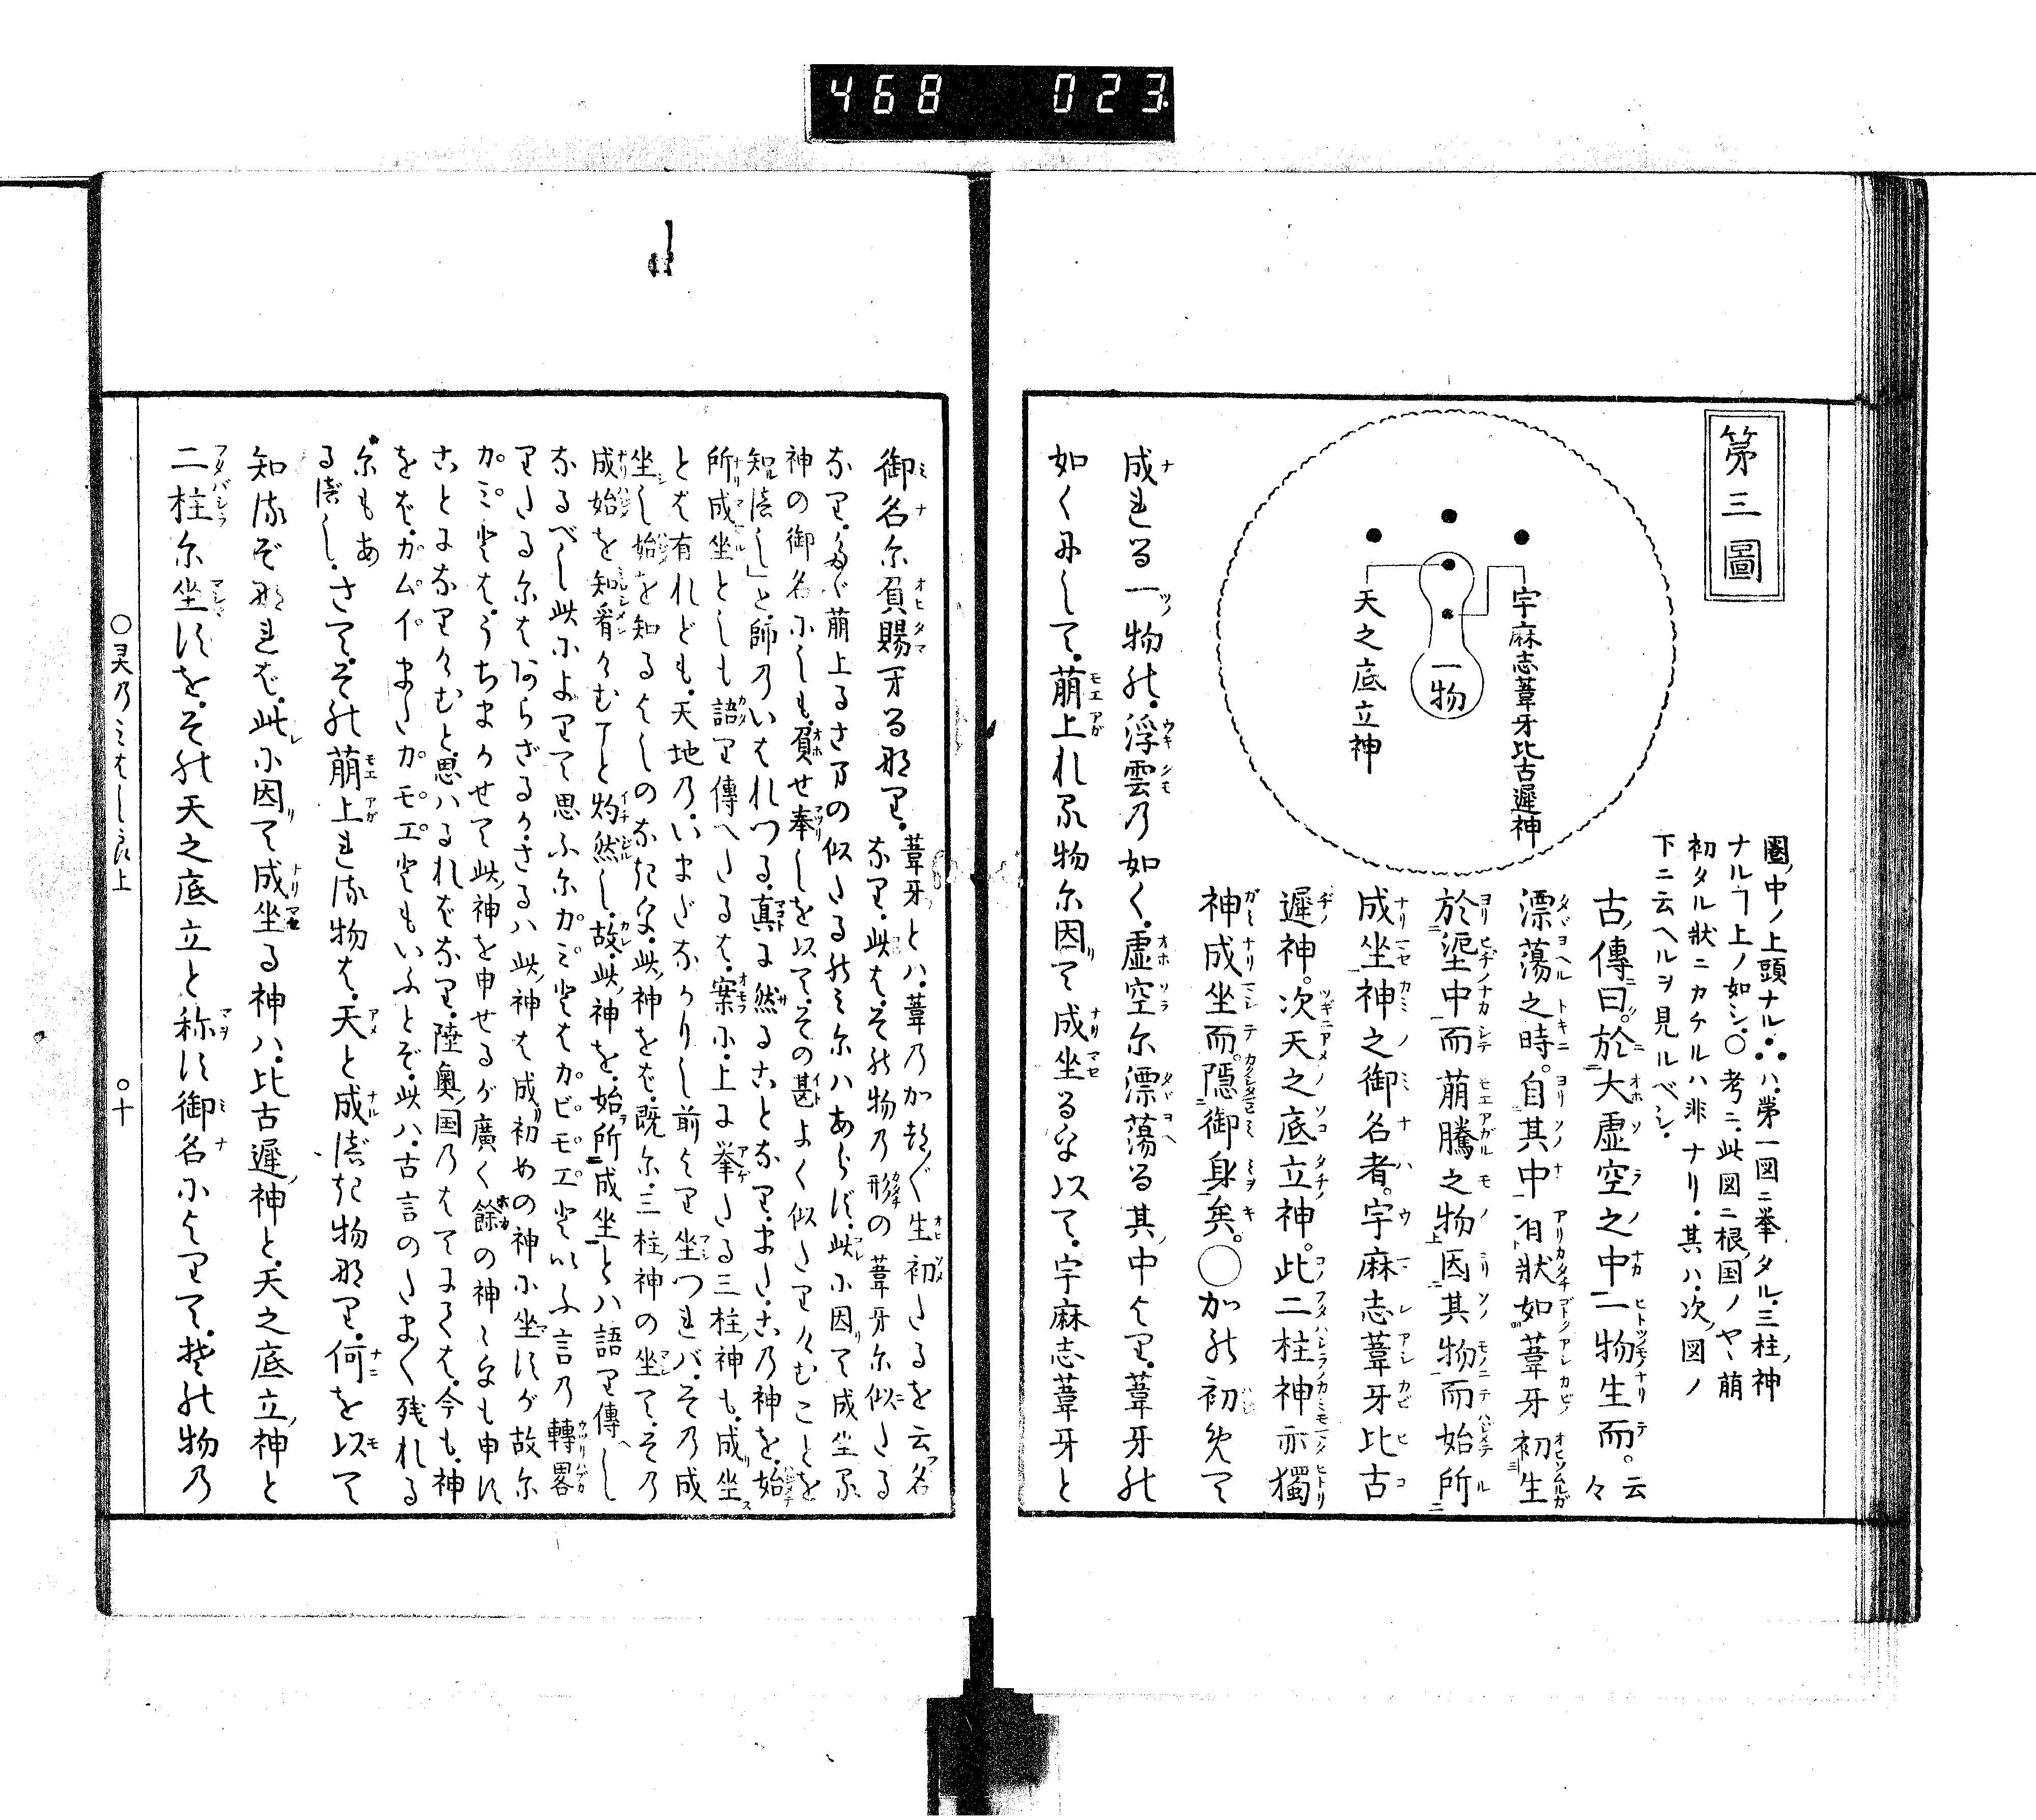 468 023
第三圖
宇麻志葦牙比古遲神
天之底立神
一物
圏ノ中ノ上頭ナル∴ハ、第一図ニ挙タル、三柱ノ神
ナルヿ上ノ如シ。○考ニ、此図ニ根ノ国ノヤヽ萠
初タル状ニカケルハ非ナリ。其ハ、次ノ図ノ
下ニ云ヘルヲ見ルベシ。
古傳曰。於大虚空之中一物生而。云々
漂蕩之時。自其中有状如葦牙初生
於埿中而萠騰之物因其物而始所
成坐神之御名者。宇麻志葦牙比古
遲神。次天之底立神。此二柱神亦獨
神成坐而。隱御身矣。○加の初めて
成れる一物の、浮雲の如く、虚空に漂蕩る其中より、葦牙の
如くにして、萠上れる物に因て成坐るを以て、宇麻志葦牙と
御名に負賜へる那り。
葦牙とハ、葦の加都々生初たるを云名
なり、此は、その物の形の葦牙に似たる
なり、たゞ萠上るさまの似たるのみにハあらず、此に因て成坐る
神の御名にしも、負せ奉しを以て、その甚よく似たりけむことを
知べし」と師のいはれつる、真に然ることなり、また、この神を、始
所成坐としも語り傳へたるは、案に、上に挙たる三柱神も、成坐
とは有れども、天地の、いまだなかりし前より坐つれバ、その成
坐し始を知るよしのなきを、此神をば、既に、三柱神の坐て、その
成始を知看けむこと灼然し、故此神を、始所成坐とハ語り傳へし
なるべし此によりて思ふにカミとはカビモエといふ言の轉畧
りたるにはあらざるか、さるハ此神は成初めの神に坐すが故に
カミとは、うちまかせて此神を申せるが廣く餘の神々をも申す
ことになりけむと思ハるればなり、陸奥国のはてにては、今も、神
をば、カムイまたカモエともいふとぞ、此ハ、古言のたまく残れる
にもあ
るべし、さて、その萠上れる物は、天と成べき物那り、何を以て
知るぞ那れば、此に因て成坐る神ハ、比古遲神と、天之底立神と
二柱に坐すを、その天之底立と称す御名によりて、其の物の
○灵乃みはしら上
○十